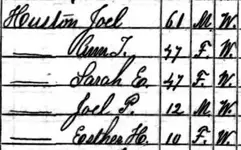 Huston Joel 61 M. W.
—— Ann T. 47 F. W.
—— Sarah E. 47 F. W.
—— Joel P. 12 M. W.
—— Esther H. 10 F. W.